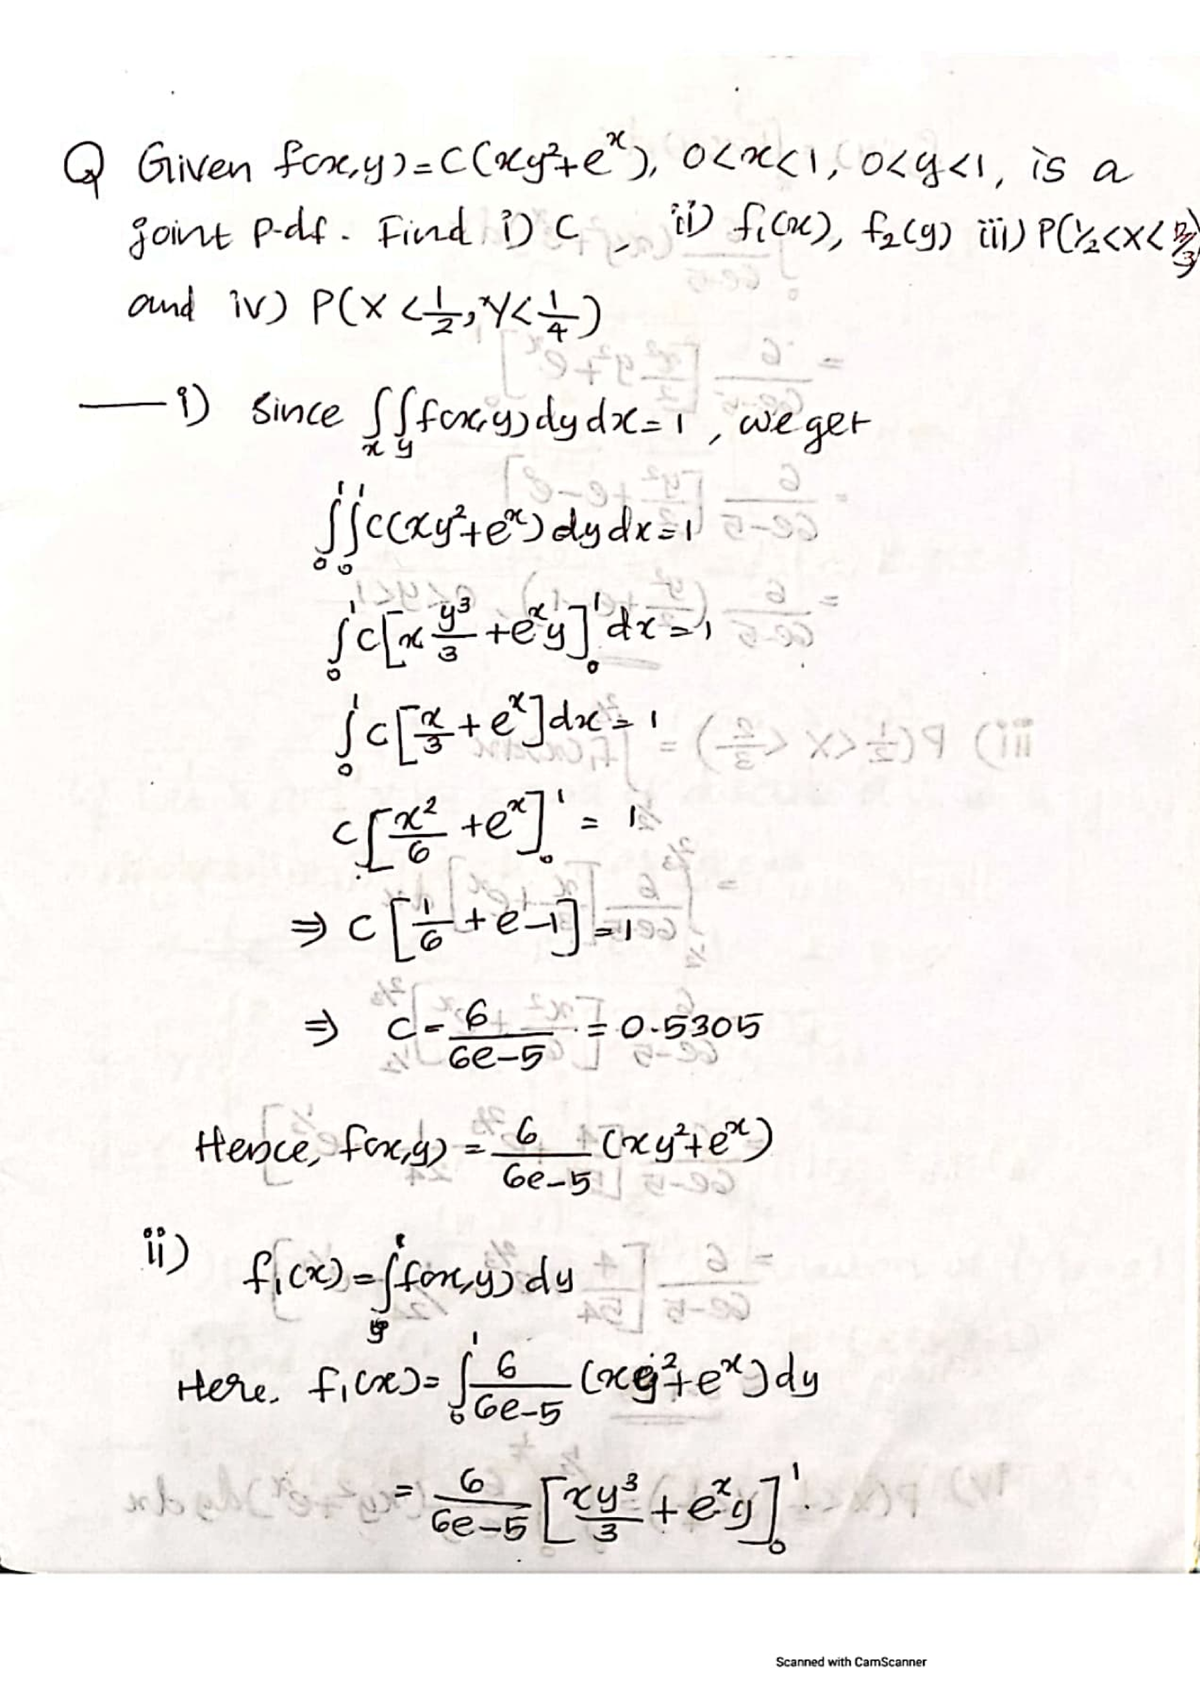 Q Given f(x,y)=C(xy²+eˣ), 0<x<1, 0<y<1, is a
joint p.d.f. Find i) C, ii) f₁(x), f₂(y) iii) P(½<X<2/3)
and iv) P(X<1/2, Y<1/4)
— i) Since ∫ₓ∫ᵧ f(x,y) dy dx = 1, we get
∫₀¹∫₀¹ C(xy²+eˣ) dy dx = 1
∫₀¹ C[x y³/3 + eˣy]₀¹ dx = 1
∫₀¹ C[x/3 + eˣ] dx = 1
C[x²/6 + eˣ]₀¹ = 1
⇒ C[1/6 + e - 1] = 1
⇒ C = 6/(6e-5) = 0.5305
Hence, f(x,y) = 6/(6e-5) (xy²+eˣ)
ii) f₁(x) = ∫ f(x,y) dy
Here, f₁(x) = ∫₀¹ 6/(6e-5) (xy²+eˣ) dy
= 6/(6e-5) [xy³/3 + eˣy]₀¹.
Scanned with CamScanner